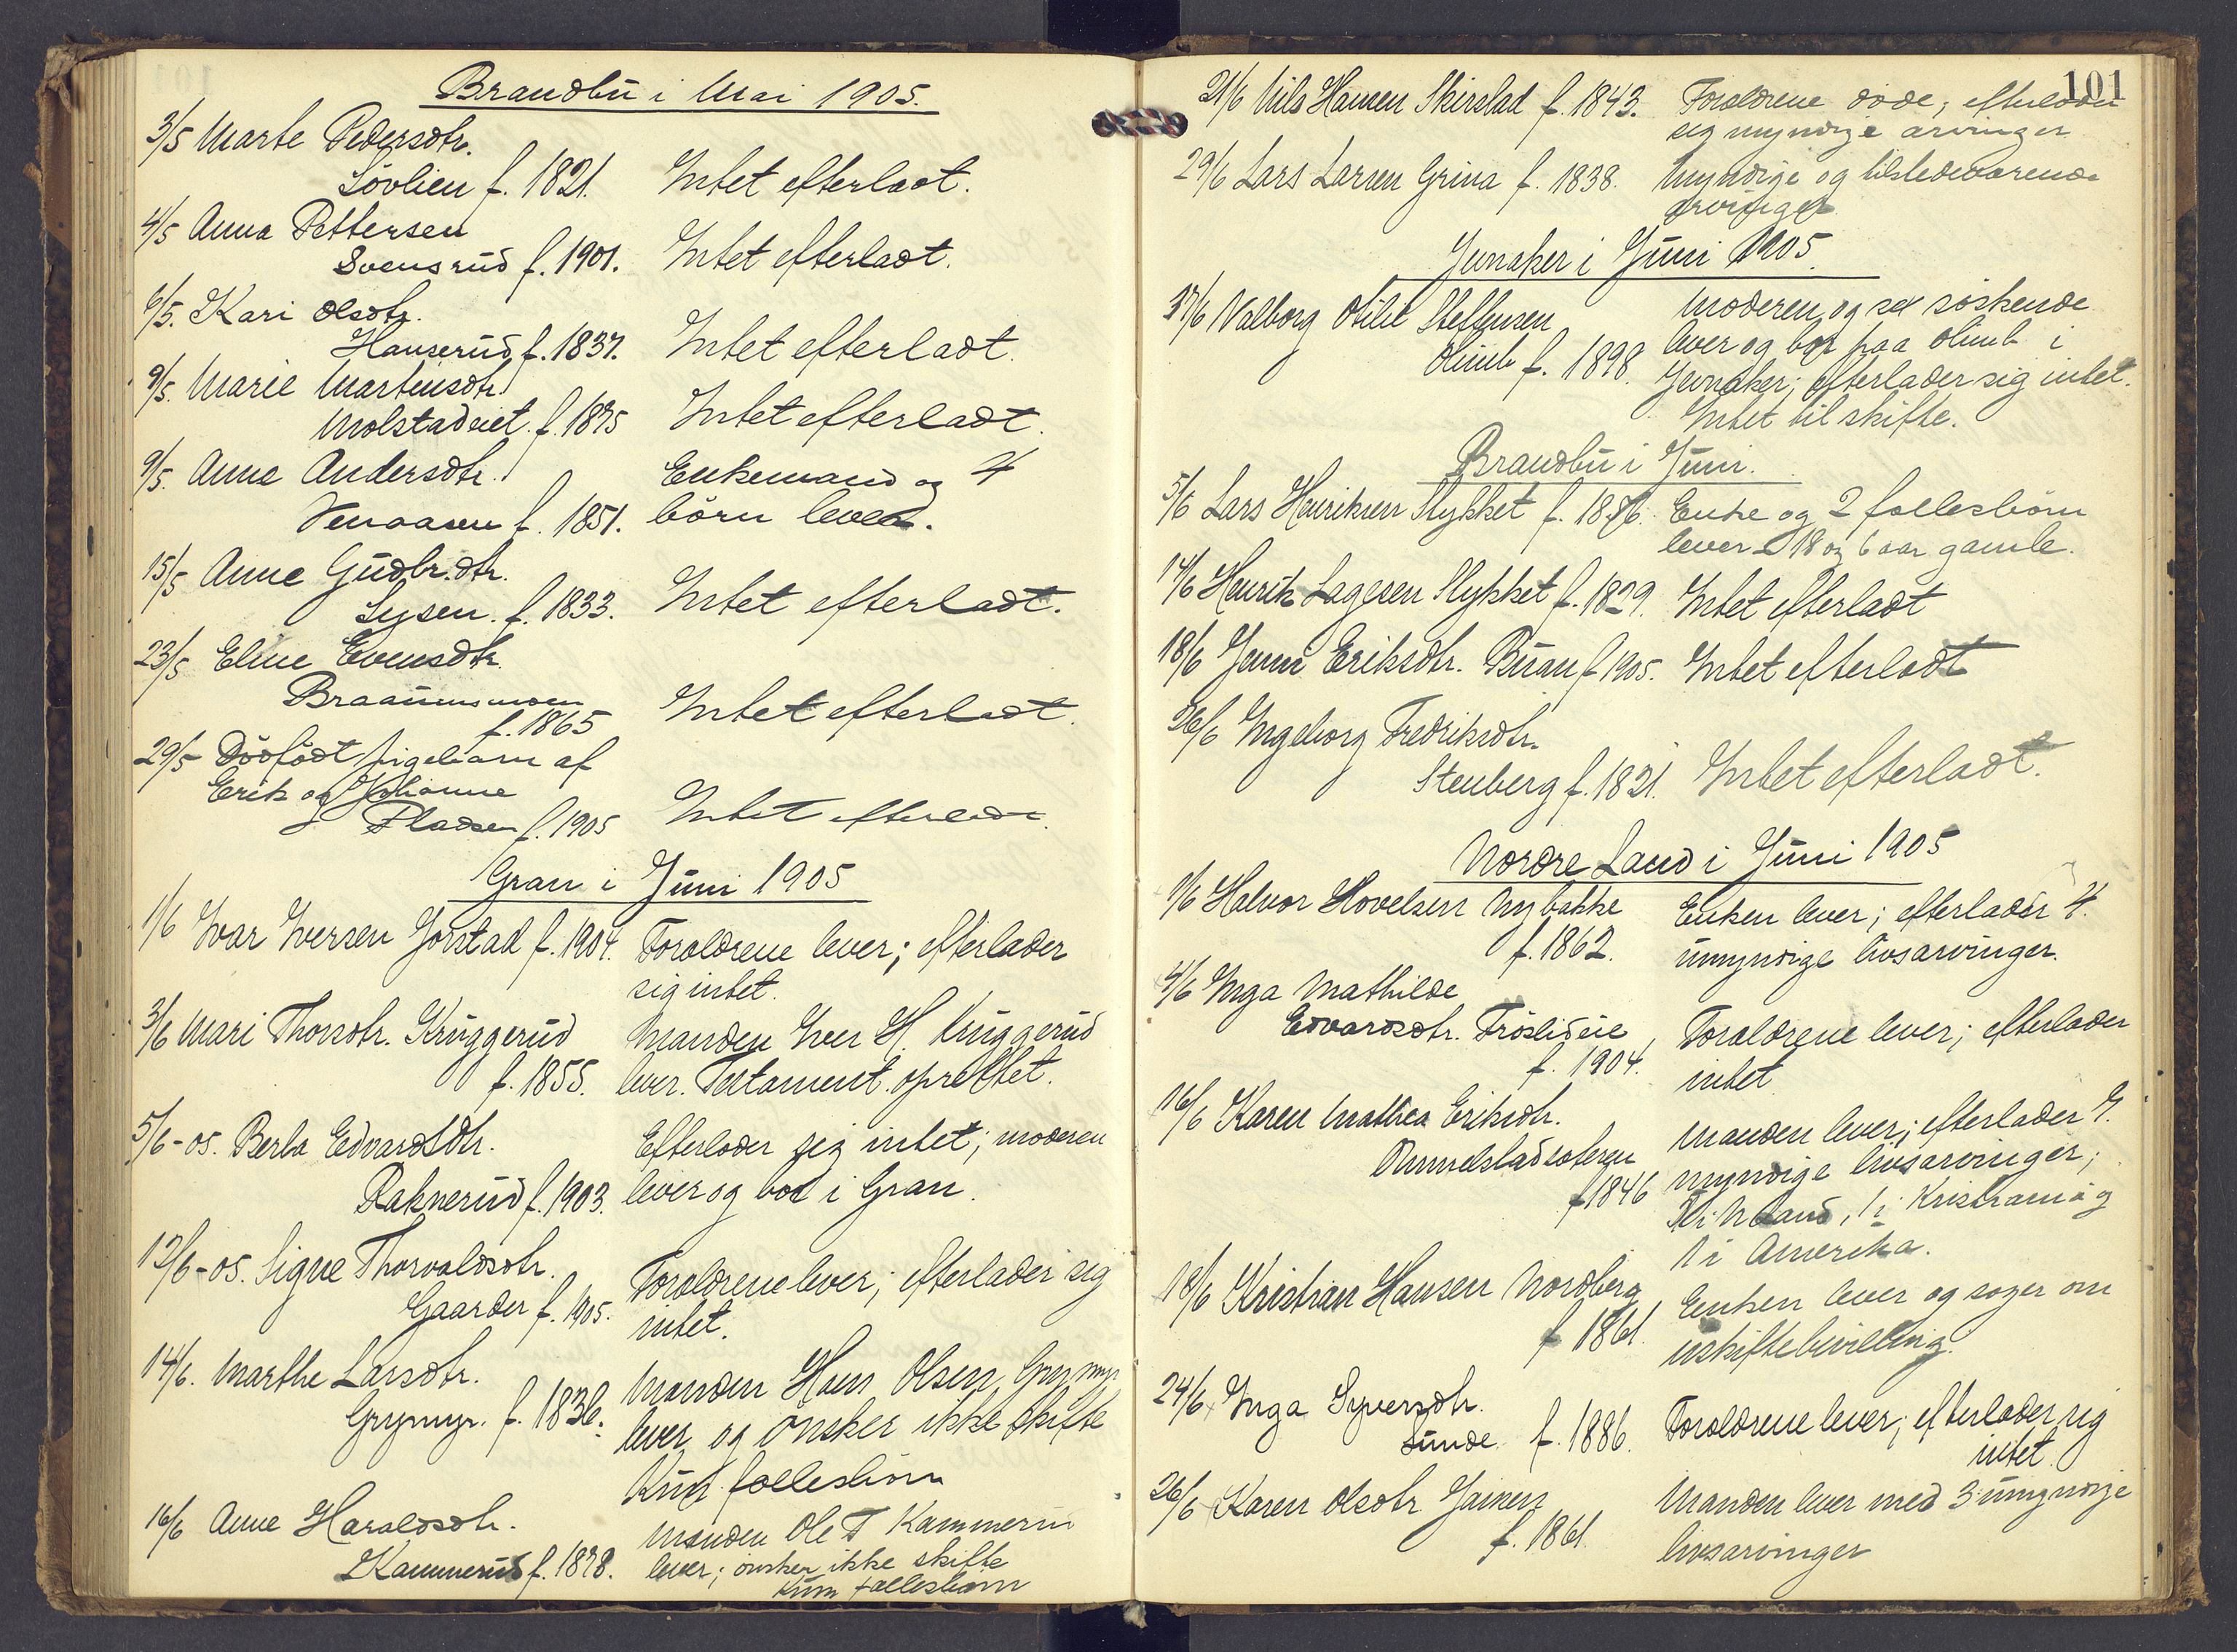 Brandbu i Mai 1905.
3/5 Marte Pedersdtr.
Sövlien f. 1821. Intet efterladt.
4/5 Anna Pettersen
Svensrud f. 1901. Intet efterladt.
6/5. Kari Olsdtr.
Hauserud f. 1837. Intet efterladt.
9/5. Marie Martinsdtr.
Molstadeiet. f. 1875 Intet efterladt.
9/5. Anne Andersdtr. Enkemand og 4
f. 1851. börn lever.
15/5 Anne Gudbr.dtr.
Lysen. f. 1833. Intet efterladt.
23/5 Eline Evensdtr.
Braaumsmoen
f. 1865 Intet efterladt.
29/5 Dödfödt pigebarn af
Erik og Johanne
Pladsen f. 1905 Intet efterladt.
Gran i Juni 1905
1/6 Ivar Iversen Jorstad f. 1904. Foraldrene lever; efterlader
sig intet.
3/6 Mari Thorsdtr. Kruggerud Manden Iver H. Kruggerud
f. 1855. lever. Testament oprettet.
5/6-05. Berta Edvardsdtr. Efterlader sig intet; moderen
Raknerud f. 1903. lever og bor i Gran.
12/6-05. Signe Thorvaldsdtr. Foraldrene lever; efterlader sig
Gaarder f. 1905. intet.
14/6. Marthe Larsdtr. Manden Hans Olsen Grymyr
Grymyr. f. 1836. lever og önsker ikke skifte
Kun fallesbörn
16/6 Anne Haraldsdtr. Manden Ole T Kammerud
Kammerud f. 1878. lever; önsker ikke skifte
Kun fallesbörn
101
21/6 Nils Hansen Skirstad f. 1843. Foraldrene döde; efterlader
sig myndige arvinger
29/6 Lars Larsen Grina f. 1838. Myndige og tilstedevarende
arvinger
Jevnaker i Juni 1905.
Valborg Otilie Steffensen Moderen og sex söskende
Olimb f. 1898. lever og bor paa Olimb i
Jevnaker; efterlader sig intet.
Intet til skifte.
Brandbu i Juni.
5/6 Lars Henriksen Stykket Enke og 2 fallesbörn
lever - 18 og 6 aar gamle.
14/6 Henrik Lagesen Stykket f. 1829. Intet efterladt
18/6 Jenni Eriksdtr. Buan f. 1905. Intet efterladt
26/6 Ingeborg Fredriksdtr.
Stenberg f. 1821. Intet efterladt.
Nordre Land i Juni 1905
1/6 Halvor Hovelsen Nybakke Enken lever; efterlader 4.
f. 1862. umyndige livsarvinger.
4/6 Inga Mathilde
Edvardsdtr. Fröslideie Foraldrene lever; efterlader
f. 1904. intet
16/6 Karen Mathea Eriksdtr. Manden lever; efterlader 9.
f 1846 myndige livsarvinger;
i N Land, 1 i Kristiania og
1 i Amerika.
18/6 Kristian Hansen Nordberg Enken lever og söger om
f 1861. uskiftebevilling.
24/6 Inga Syversdtr.
Sunde f. 1886. Foraldrene lever; efterlader sig
intet.
26/6 Karen Olsdtr. Manden lever med 3 umyndige
f. 1861. livsarvinger